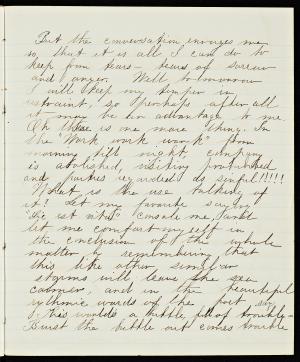 But the conversation enrages me
so that it is all I can do to
keep from tears — tears of sorrow
and anger. Well, to-morrow
I will keep my temper in
restraint, so perhaps after all
it may be an advantage to me.
Oh there is one more thing. In
the "Work work work" from
morning till night, company
is abolished, visiting prohibited
and parties regarded as sinful!!!!!
What is the use talking of
it? Let my favorite saying
console me, and
let me comfort myself in
the conclusion of the whole
matter, by remembering that
this like other similar
storms will leave the sea
calmer, and in the beautiful
rythmic words of the poet, say
This world's a bubble full of trouble —
Burst the bubble out comes trouble